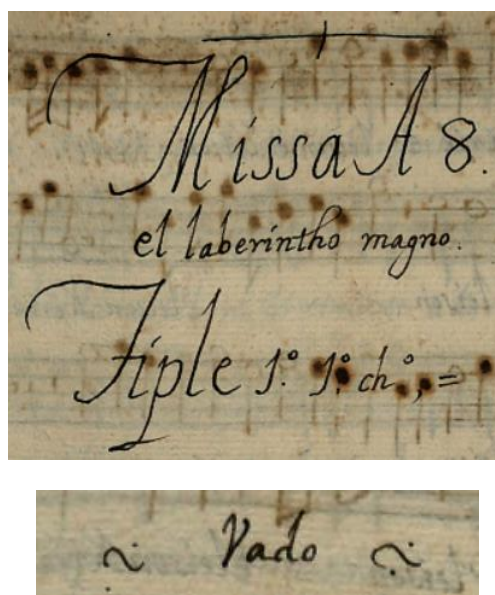 Missa A 8.
el laberintho magno.
Tiple 1º. 1º. chº, =
~ Vado ~